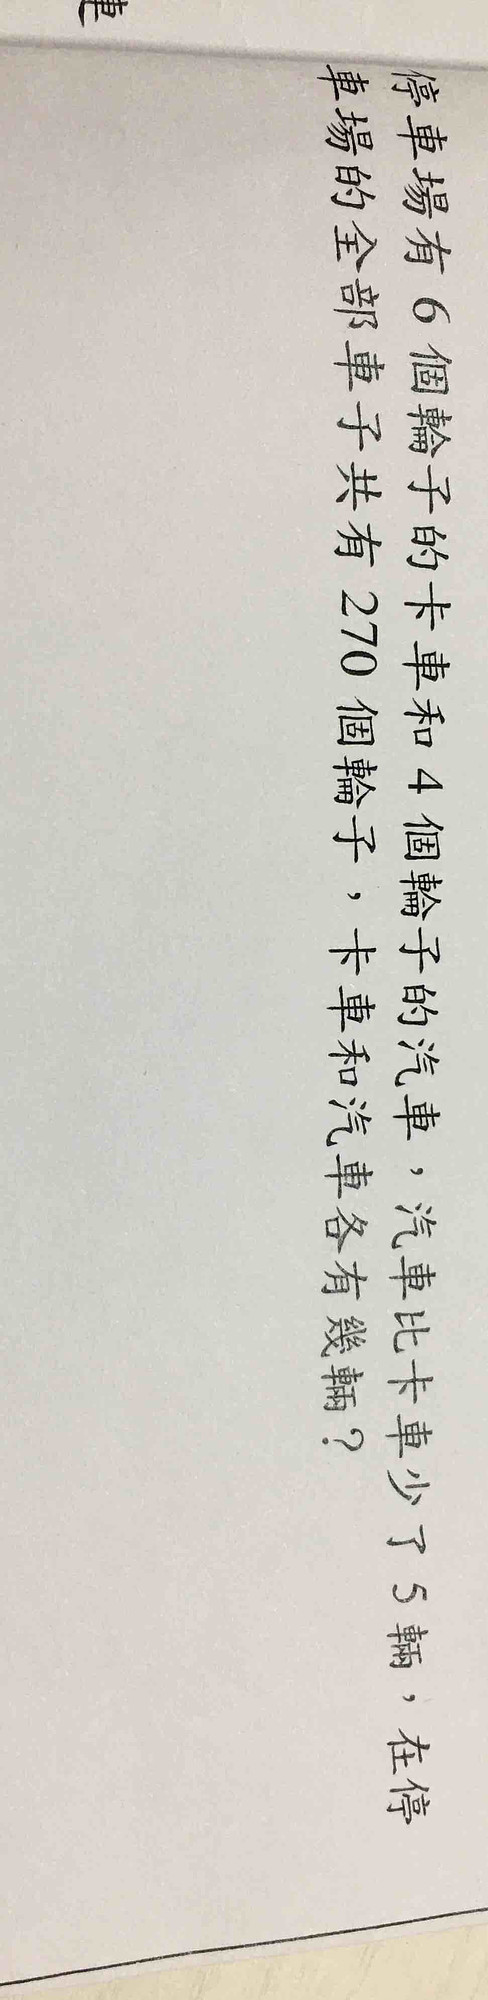 停車場有 6 個輪子的卡車和 4 個輪子的汽車，汽車比卡車少了 5 輛，在停
車場的全部車子共有 270 個輪子，卡車和汽車各有幾輛？